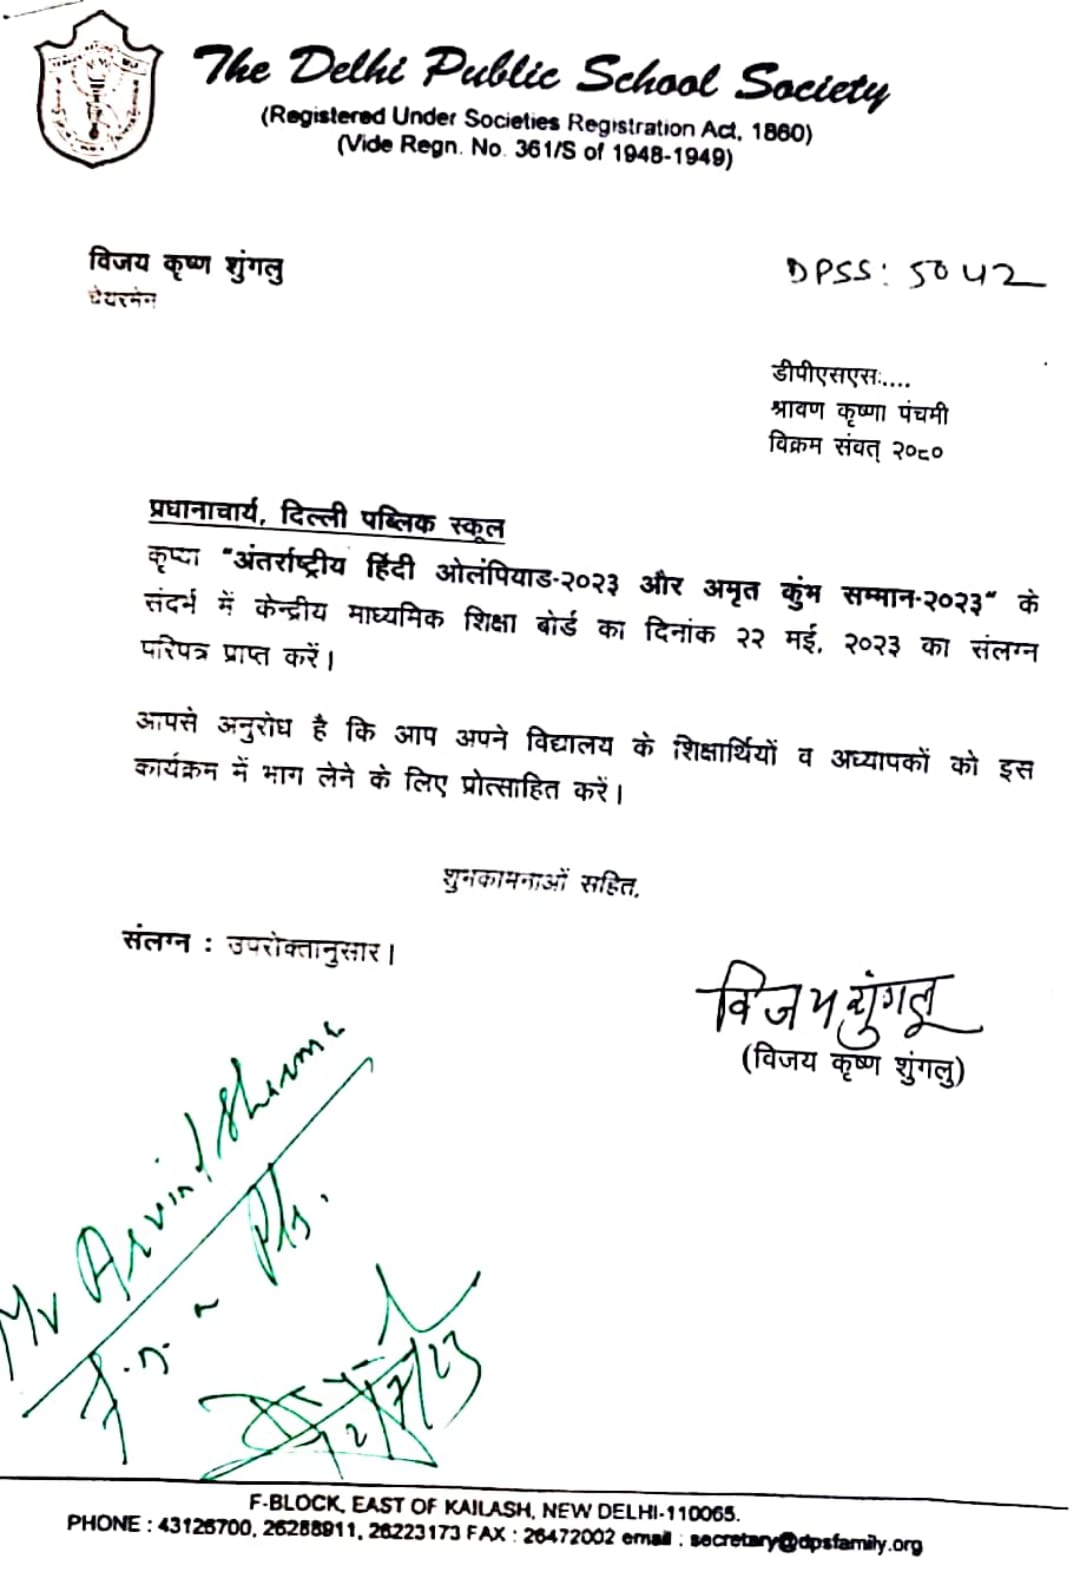 The Delhi Public School Society
(Registered Under Societies Registration Act, 1860)
(Vide Regn. No. 361/S of 1948-1949)
विजय कृष्ण शुंगलु
चेयरमेन
DPSS: 5042
डीपीएसएस:....
श्रावण कृष्णा पंचमी
विक्रम संवत् २०८०
प्रधानाचार्य, दिल्ली पब्लिक स्कूल
कृप्या "अंतर्राष्ट्रीय हिंदी ओलंपियाड-२०२३ और अमृत कुंभ सम्मान-२०२३" के
संदर्भ में केन्द्रीय माध्यमिक शिक्षा बोर्ड का दिनांक २२ मई, २०२३ का संलग्न
परिपत्र प्राप्त करें।
आपसे अनुरोध है कि आप अपने विद्यालय के शिक्षार्थियों व अध्यापकों को इस
कार्यक्रम में भाग लेने के लिए प्रोत्साहित करें।
शुभकामनाओं सहित,
संलग्न : उपरोक्तानुसार।
विजय शुंगलू
(विजय कृष्ण शुंगलु)
Mr Arvind Sharma
f.n. ~ Pls.
12/7/23
F-BLOCK, EAST OF KAILASH, NEW DELHI-110065.
PHONE : 43126700, 26288911, 26223173 FAX : 26472002 email : secretary@dpsfamily.org